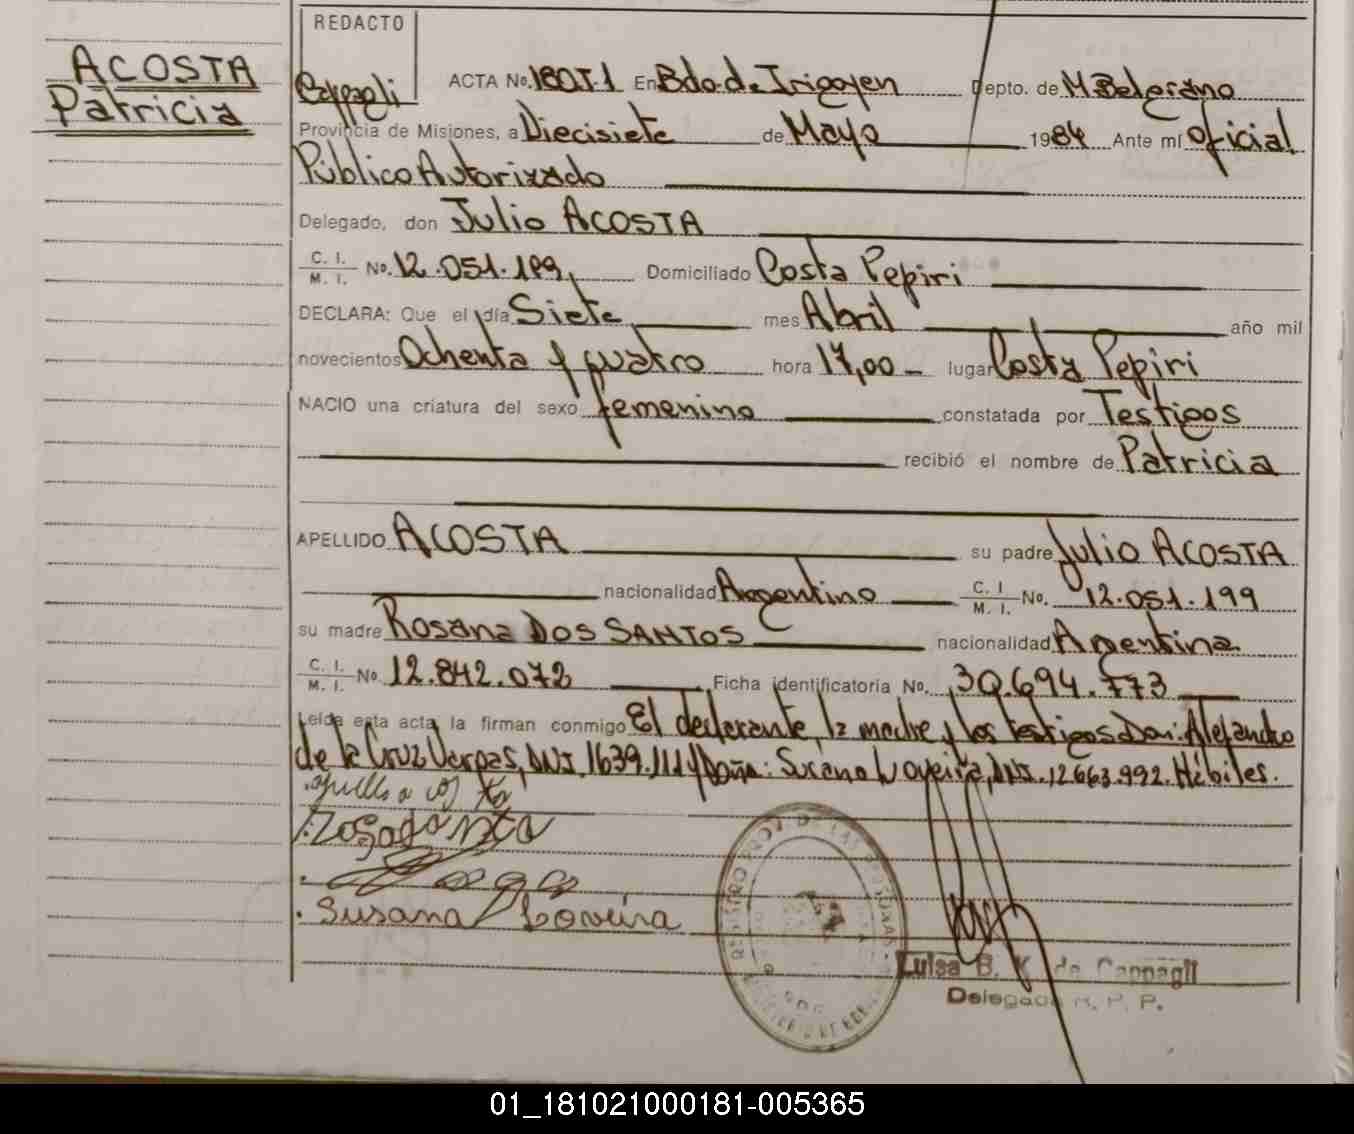 REDACTO
ACOSTA
Patricia
Cappagli ACTA No. 180T.1 En Bdo. de Irigoyen Depto. de M Belgrano
Provincia de Misiones, a Diecisiete de Mayo 1984 Ante mí Oficial
Público Autorizado
Delegado, don Julio ACOSTA
C. I. M. I. No. 12.051.199 Domiciliado Costa Pepiri
DECLARA: Que el día Siete mes Abril año mil
novecientos Ochenta y cuatro hora 17,00 lugar Costa Pepiri
NACIO una criatura del sexo femenino constatada por Testigos
recibió el nombre de Patricia
APELLIDO ACOSTA su padre Julio ACOSTA
nacionalidad Argentino C. I M. I. No. 12.051.199
su madre Rosana DOS SANTOS nacionalidad Argentina
C. I. M. I. No 12.842.072 Ficha identificatoria No. 30.694.773
Leída esta acta, la firman conmigo El declarante, la madre y los testigos Don: Alejandro
de la Cruz Vargas, DNI. 1639.111 y Doña: Susana Loveira, DNI. 12.663.992. Hábiles.
Susana Loveira
REGISTRO PROV. DE LAS PERSONAS
Luisa B. K. de Cappagli
Delegada R. P. P.
01_181021000181-005365